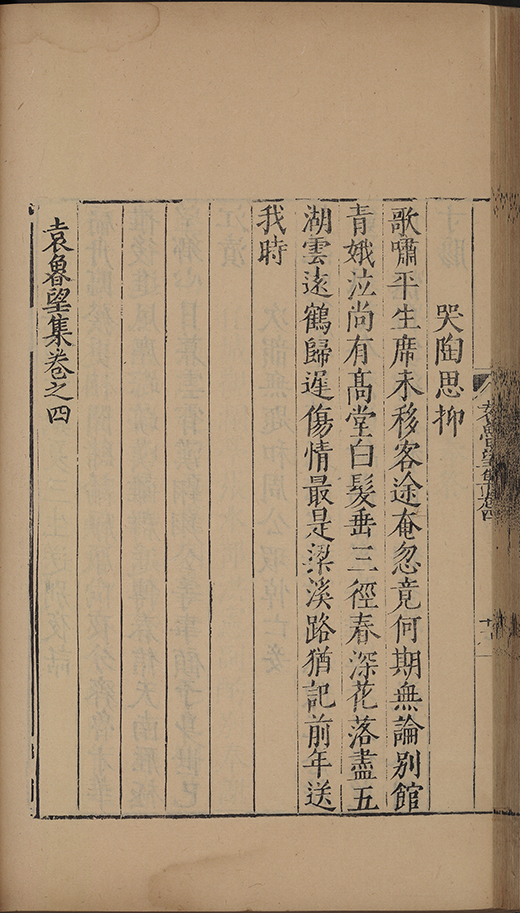 哭陶思抑
歌嘯平生席未移客途奄忽竟何期無論別館
青娥泣尚有髙堂白髮垂三徑春深花落盡五
湖雲遠鶴歸遲傷情最是梁溪路猶記前年送
我時
袁魯望集卷之四